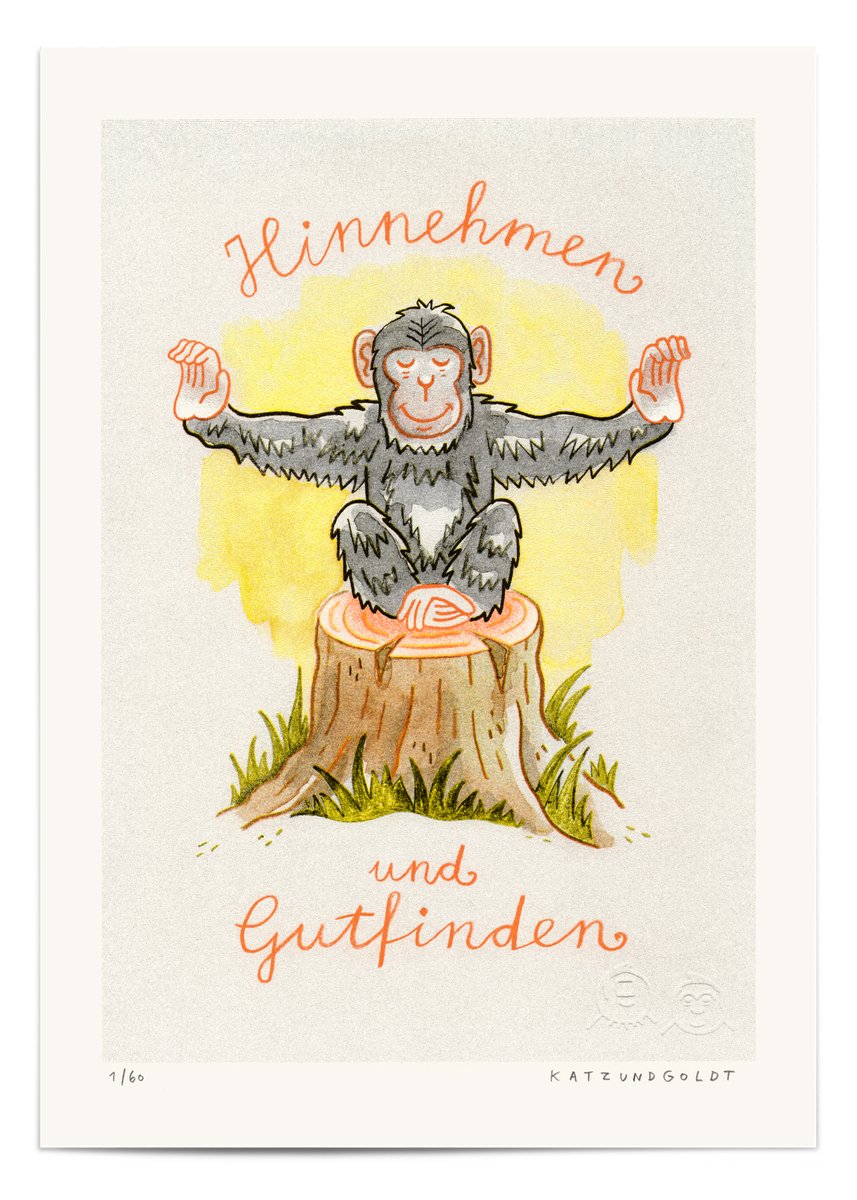 Hinnehmen
und
Gutfinden
1/60
KATZUNDGOLDT